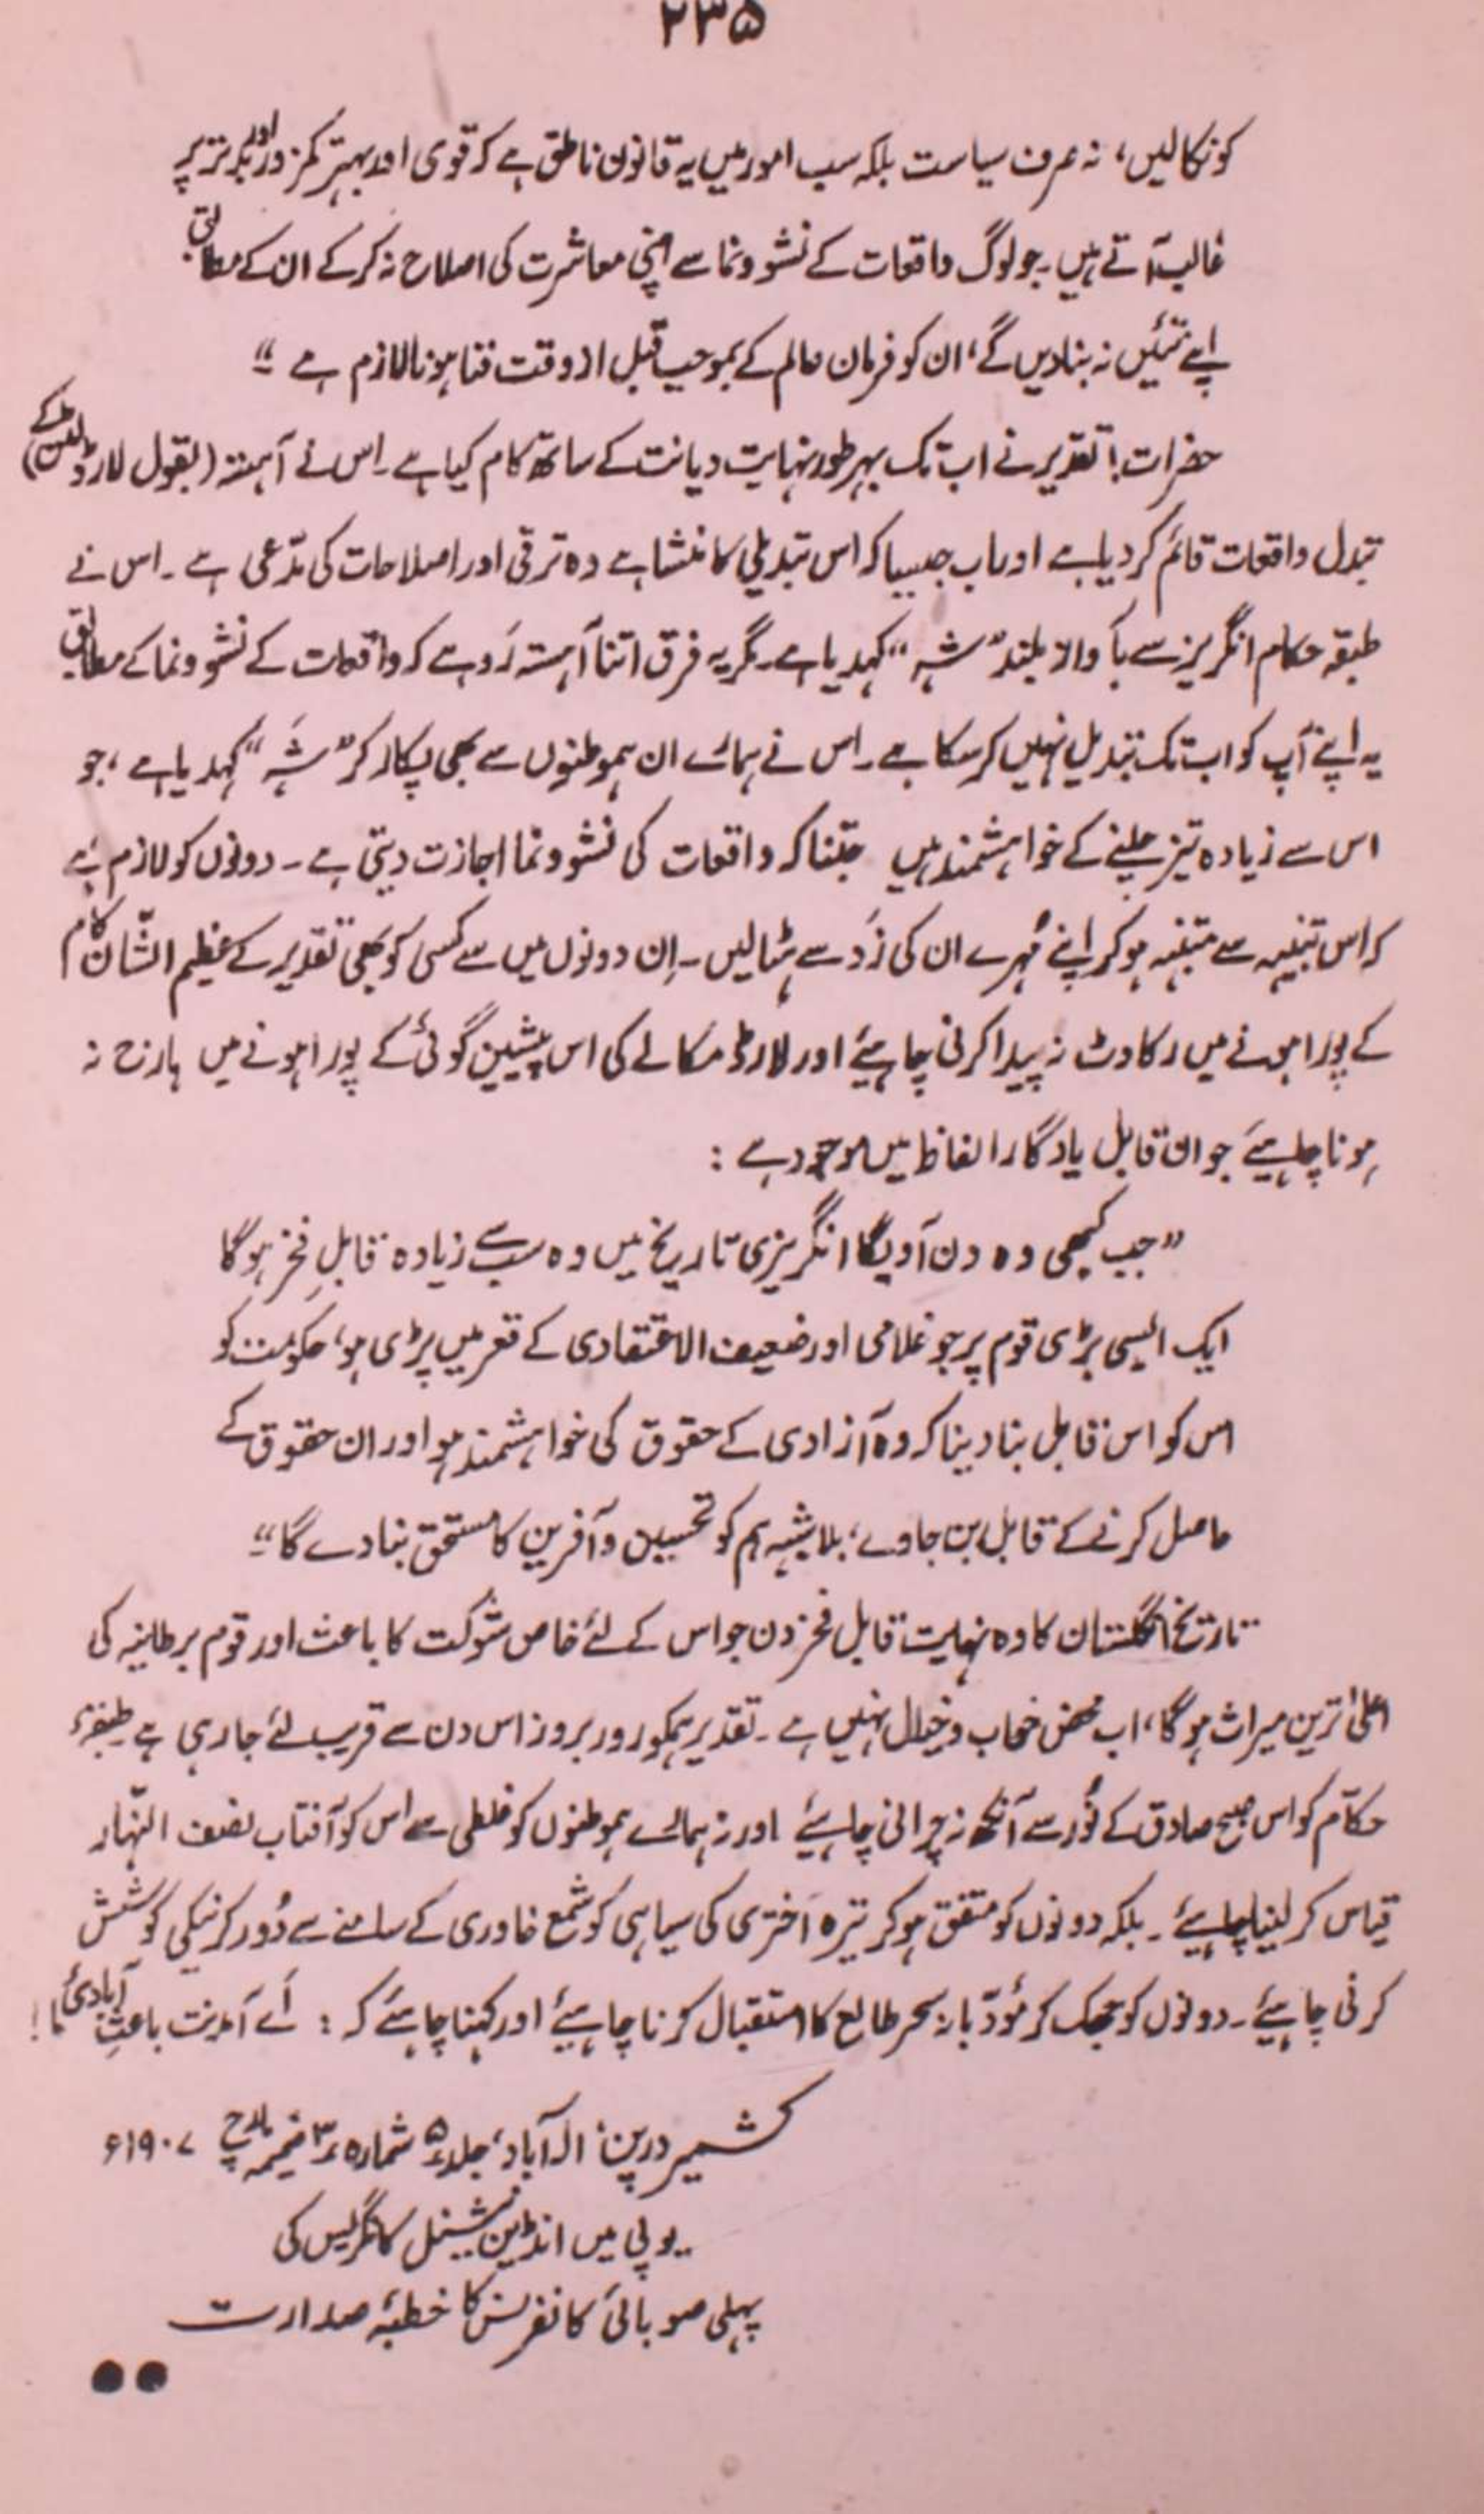 ۲۳۵
کو نکالیں، نہ صرف سیاست بلکہ سب امور میں یہ قانون ناطق ہے کہ قوی اور بہتر کمزور اور بدتر پر
غالب آتے ہیں۔ جو لوگ واقعات کے نشو ونما سے اپنی معاشرت کی اصلاح نہ کر کے ان کے مطابق
اپنے تئیں نہ بنا دیں گے، ان کو فرمان عالم کے بموجب قبل از وقت فنا ہونا لازم ہے ۔“
حضرات! تقدیر نے اب تک بہر طور نہایت دیانت کے ساتھ کام کیا ہے ۔ اس نے آہستہ (بقول لارڈ کے)
تبدل واقعات قائم کر دیا ہے اور اب جیسا کہ اس تبدیلی کا منشا ہے وہ ترقی اور اصلاحات کی مدّعی ہے ۔ اس نے
طبقہ حکام انگریز سے بآواز بلند ”شہ“ کہدیا ہے ۔ مگر یہ فرق اتنا آہستہ رَو ہے کہ واقعات کے نشو ونما کے مطابق
یہ اپنے آپ کو اب تک تبدیل نہیں کر سکا ہے ۔ اس نے ہمارے ان ہموطنوں سے بھی پکار کر ”شَہ“ کہدیا ہے، جو
اس سے زیادہ تیز چلنے کے خواہشمند ہیں جتنا کہ واقعات کی نشو ونما اجازت دیتی ہے ۔ دونوں کو لازم ہے
کہ اس تنبیہہ سے متنبہ ہو کر اپنے مُہرے ان کی زَد سے ہٹا لیں ۔ اِن دونوں میں سے کسی کو بھی تقدیر کے عظیم الشّان کام
کے پورا ہونے میں رکاوٹ نہ پیدا کرنی چاہیئے اور لارڈ مکالے کی اس پیشین گوئی کے پورا ہونے میں ہارج نہ
ہونا چاہیئے جو ان قابل یادگار الفاظ میں موجود ہے :
”جب کبھی وہ دن آویگا انگریزی تاریخ میں وہ سب سے زیادہ قابلِ فخر ہوگا
ایک ایسی بڑی قوم پر جو غلامی اور ضعیف الاعتقادی کے قعر میں پڑی ہو، حکومت کو
اس کو اس قابل بنا دینا کہ وہ آزادی کے حقوق کی خواہشمند ہو اور ان حقوق کے
حاصل کرنے کے قابل بن جاوے، بلا شبہ ہم کو تحسین و آفرین کا مستحق بنا دے گا ۔“
تاریخ انگلستان کا وہ نہایت قابل فخر دن جو اس کے لئے خاص شوکت کا باعث اور قوم برطانیہ کی
اعلیٰ ترین میراث ہوگا، اب محض خواب و خیال نہیں ہے ۔ تقدیر ہمکو روز بروز اس دن سے قریب لئے جا رہی ہے طبقۂ
حکّام کو اس صبح صادق کے نُور سے آنکھ نہ چرانی چاہیئے اور نہ ہمارے ہموطنوں کو غلطی سے اس کو آفتاب نصف النّہار
قیاس کر لینا چاہیئے ۔ بلکہ دونوں کو متفق ہو کر تیرہ اَختری کی سیاہی کو شمع خاوری کے سامنے سے دُور کرنیکی کوشش
کرنی چاہیئے ۔ دونوں کو جھک کر مؤدّبانہ سحر طالع کا استقبال کرنا چاہیئے اور کہنا چاہئے کہ : اَے آمدنت باعثِ آبادیٔ ما !
کشمیر درپن، الٰہ آباد، جلد ۵ شمارہ ۳ ضمیمہ مارچ ۱۹۰۷ء
یو پی میں انڈین نیشنل کانگریس کی
پہلی صوبائی کانفرنس کا خطبۂ صدارت